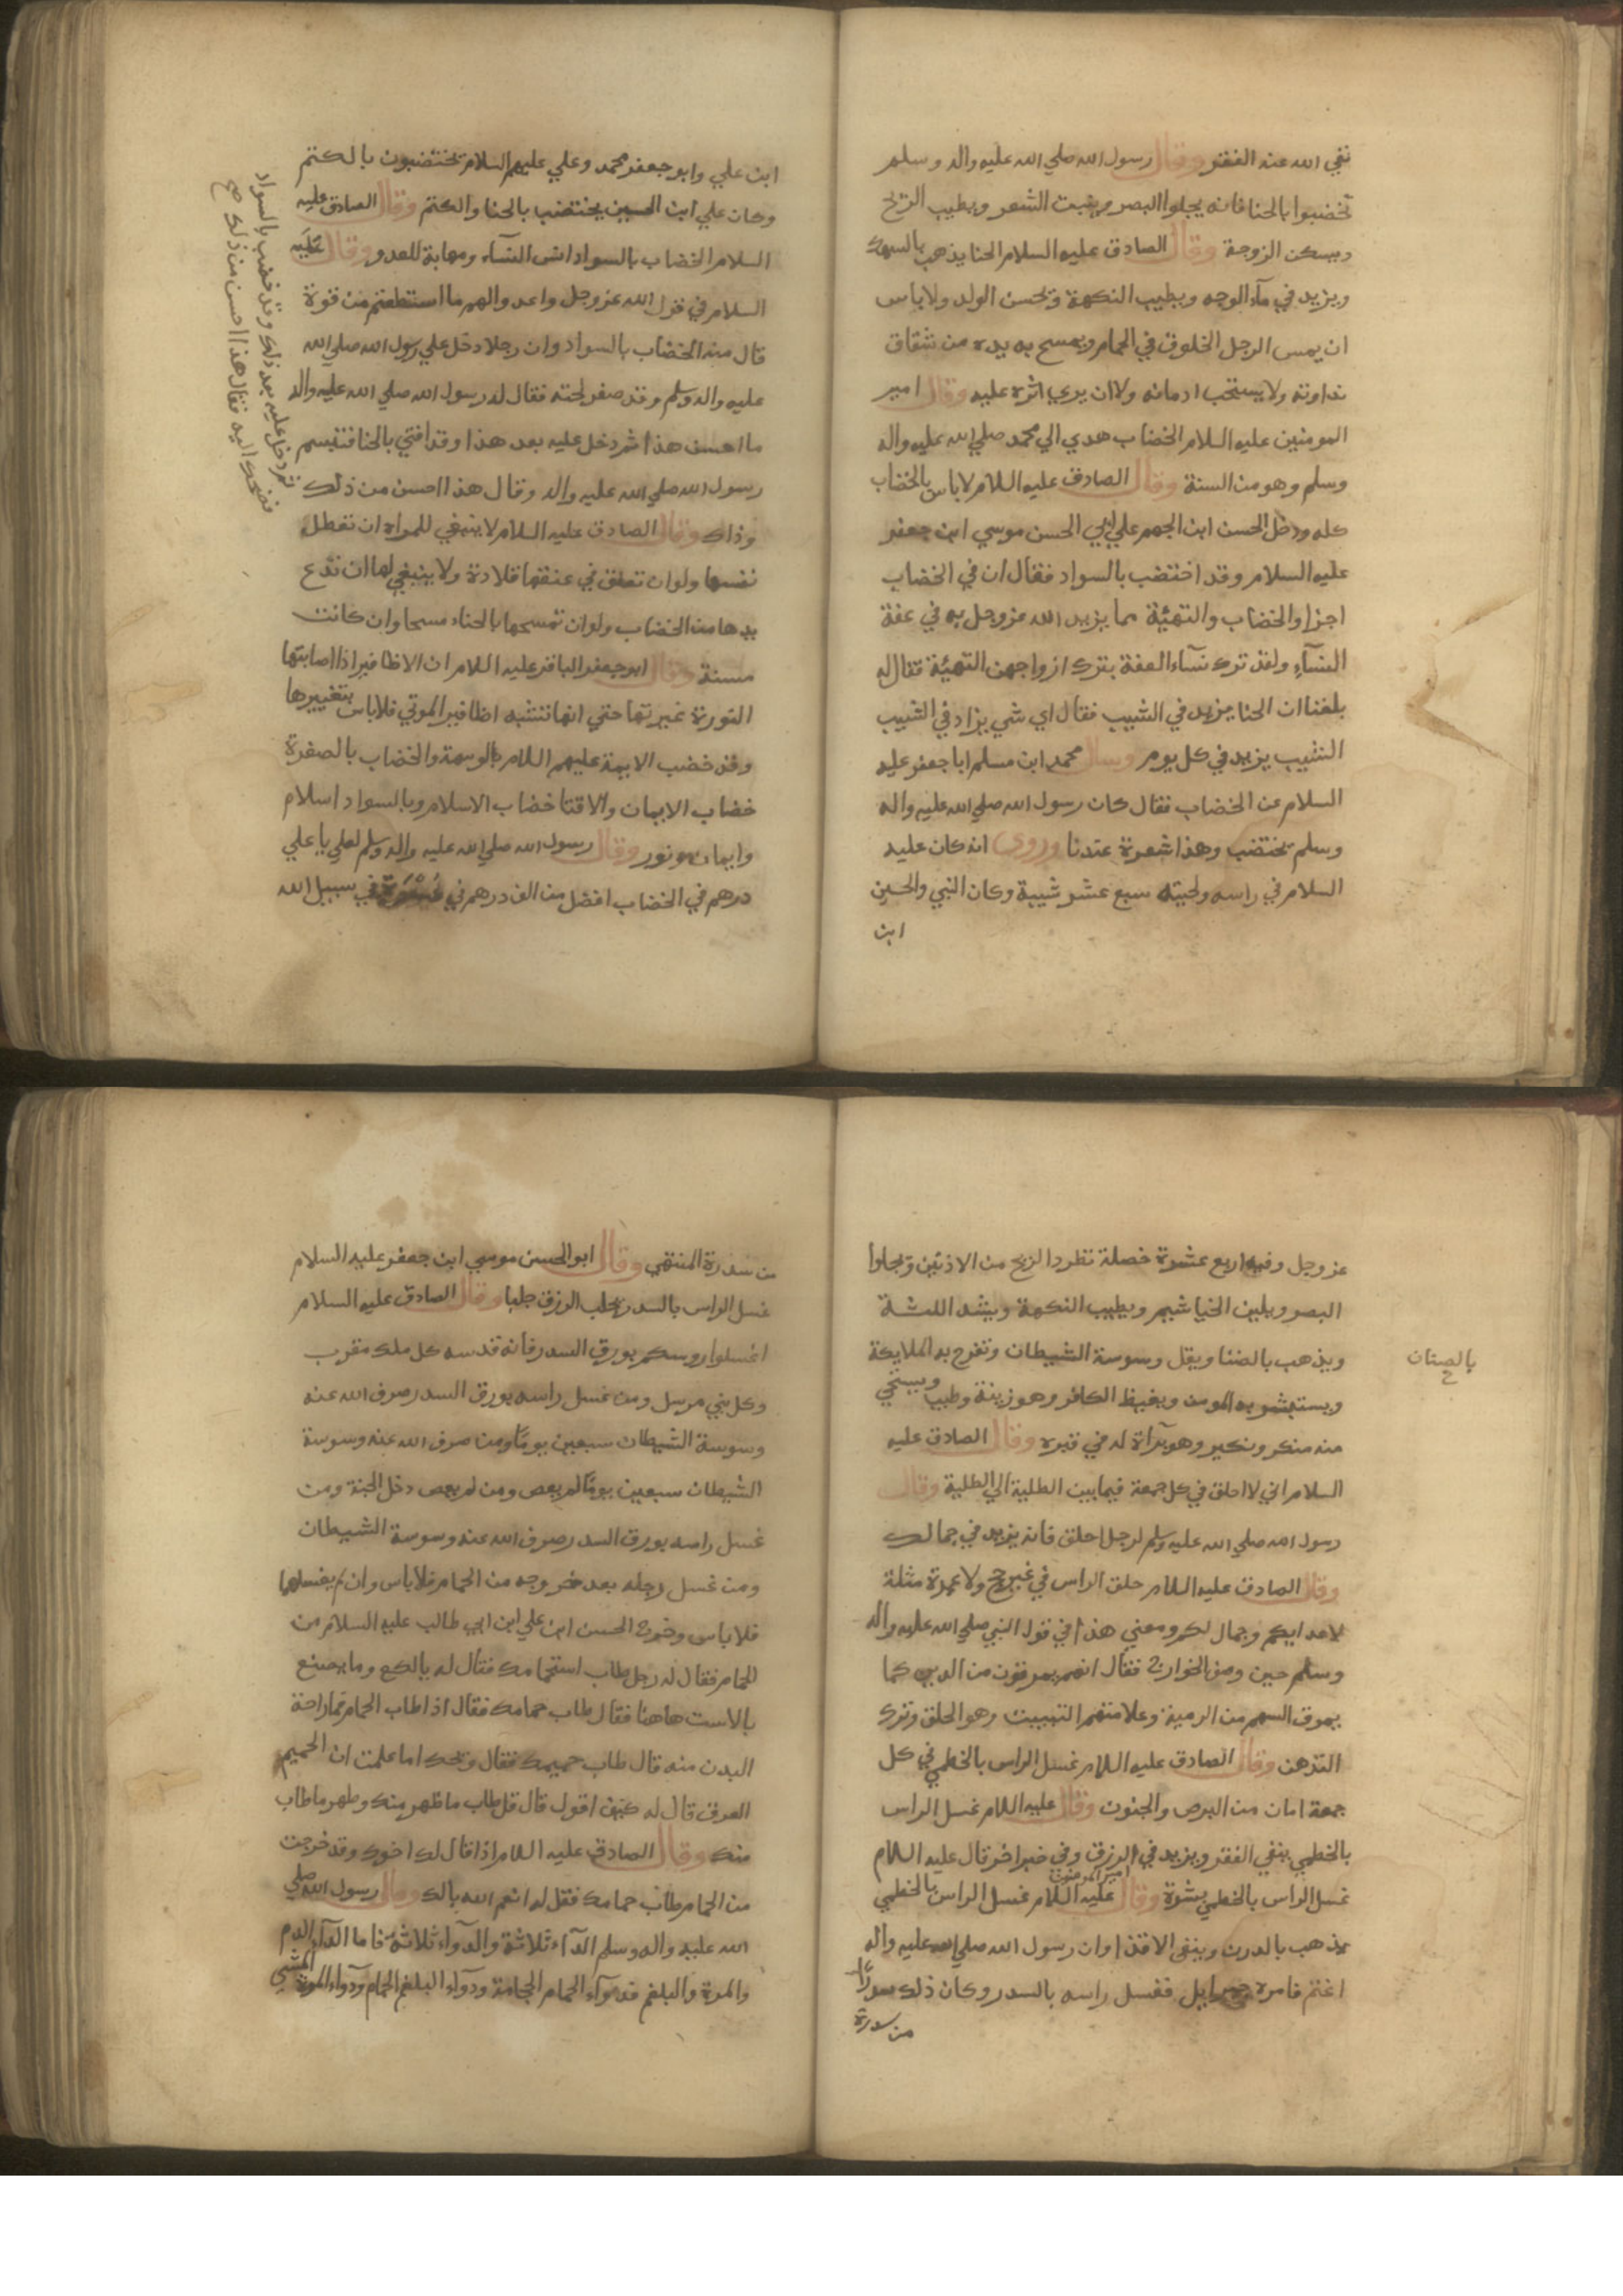 نفي الله عنه الفقر وقال رسول الله صلي الله عليه واله وسلم
تخضبوا بالحنا فانه يجلوا البصر وينبت الشعر ويطيب الريح
ويسكن الزوجة وقال الصادق عليه السلام الحنا يذهب بالسهك
ويزيد في مآء الوجه ويطيب النكهة ويحسن الولد ولا باس
ان يمس الرجل الخلوق في الحمام ويمسح به يده من شقاق
نداونه ولا يستحب ادمانه ولا ان يري اثره عليه وقال امير
المومنين عليه السلام الخضاب هدي الي محمد صلي الله عليه واله
وسلم وهو من السنة وقال الصادق عليه السلام لا باس بالخضاب
كله ودخل الحسن ابن الجهم علي ابي الحسن موسي ابن جعفر
عليه السلام وقد اختضب بالسواد فقال ان في الخضاب
اجرا والخضاب والتهيئة مما يزيد الله عز وجل به في عفة
النسآء ولقد ترك نسآء العفة بترك ازواجهن التهيئة فقال له
بلغنا ان الحنا يزيد في الشيب فقال اي شي يزاد في الشيب
الشيب يزيد في كل يوم وسال محمد ابن مسلم ابا جعفر عليه
السلام عن الخضاب فقال كان رسول الله صلي الله عليه واله
وسلم يختضب وهذا شعرة عندنا وروي انه كان عليه
السلام في راسه ولحيته سبع عشر شيبة وكان النبي والحسين
ابن
ابن علي وابو جعفر محمد وعلي عليهم السلام يختضبون بالكتم
وكان علي ابن الحسين يختضب بالحنا والكتم وقال الصادق عليه
السلام الخضاب بالسواد انس النسآء ومهابة للعدو وقال عليه
السلام في قول الله عز وجل واعدوا لهم ما استطعتم من قوة
قال منه الخضاب بالسواد وان رجلا دخل علي رسول الله صلي الله
عليه واله وسلم وقد صفر لحته فقال له رسول الله صلي الله عليه واله
ما احسن هذا ثم دخل عليه بعد هذا وقد اقني بالحنا فتبسم
رسول الله صلي الله عليه واله وقال هذا احسن من ذلك
وذاك وقال الصادق عليه السلام لا ينبغي للمراه ان تعطل
نفسها ولو ان تعلق في عنقها قلادة ولا ينبغي لها ان تدع
يدها من الخضاب ولو ان تمسحها بالحناء مسحا وان كانت
مسنة وقال ابو جعفر الباقر عليه السلام ان الاظافير اذا اصابتها
النورة غيرتها حتي انها تشبه اظافير الموتي فلا باس بتغييرها
وقد خضب الايمة عليهم السلام بالوسمة والخضاب بالصفرة
خضاب الايمان والاقنا خضاب الاسلام وبالسواد اسلام
وايمان ونور وقال رسول الله صلي الله عليه واله وسلم لعلي يا علي
درهم في الخضاب افضل من الف درهم في غيره في سبيل الله
ثم دخل عليه بعد ذلك وقد خضب بالسواد
فضحك اليه فقال هذا احسن من ذلك صح
عز وجل وفيه اربع عشرة خصلة تطرد الريح من الاذنين وتجلوا
البصر ويلين الخياشيم ويطيب النكهة ويشد اللثة
ويذهب بالضنا ويقل وسوسة الشيطان وتفرح به الملايكة
بالصنان
ويستبشر به المومن ويغيظ الكافر وهو زينة وطيب ويستحي
منه منكر ونكير وهو برآة له في قبره وقال الصادق عليه
السلام اني لا احلق في كل جمعة فيما بين الطلية الي الطلية وقال
رسول الله صلي الله عليه وسلم لرجل احلق فانه يزيد في جمالك
وقال الصادق عليه السلام حلق الراس في غير حج ولا عمرة مثلة
لاعدايكم وجمال لكم ومعني هذا في قول النبي صلي الله عليه واله
وسلم حين وصف الخوارج فقال انهم يمرقون من الدين كما
يمرق السهم من الرمية وعلامتهم التسبيت وهو الحلق وترك
التدهن وقال الصادق عليه السلام غسل الراس بالخطمي في كل
جمعة امان من البرص والجنون وقال عليه السلام غسل الراس
بالخطمي ينفي الفقر ويزيد في الرزق وفي خبر اخر قال عليه السلام
غسل الراس بالخطمي نشرة وقال امير المومنين عليه السلام غسل الراس بالخطمي
يذهب بالدرن وينفي الاقذا وان رسول الله صلي الله عليه واله
اغتم فامره جبرايل فغسل راسه بالسدر وكان ذلك سدرا
من سدرة
من سدرة المنتهي وقال ابو الحسن موسي ابن جعفر عليه السلام
غسل الراس بالسدر يجلب الرزق جلبا وقال الصادق عليه السلام
اغسلوا روسكم بورق السدر فانه قدسه كل ملك مقرب
وكل نبي مرسل ومن غسل راسه بورق السدر صرف الله عنه
وسوسة الشيطان سبعين يوما ومن صرف الله عنه وسوسة
الشيطان سبعين يوما لم يعص ومن لم يعص دخل الجنة ومن
غسل راسه بورق السدر صرف الله عنه وسوسة الشيطان
ومن غسل رجله بعد خروجه من الحمام فلا باس وان لم يغسلهما
فلا باس وخرج الحسن ابن علي ابن ابي طالب عليه السلام من
الحمام فقال له رجل طاب استحمامك فقال له يا لكع وما يصنع
بالاست هاهنا فقال طاب حمامك فقال اذا طاب الحمام فما راحة
البدن منه قال طاب حميمك فقال ويحك اما علمت ان الحميم
العرق قال له كيف اقول قال قل طاب ما طهر منك وطهر ما طاب
منك وقال الصادق عليه السلام اذا قال لك اخوك وقد خرجت
من الحمام طاب حمامك فقل له انعم الله بالك وقال رسول الله صلي
الله عليه واله وسلم الدآء ثلاثة والدوآء ثلاثة فاما الدآء الدم
والمرة والبلغم فدوآء الدم الحجامة ودوآء البلغم الحمام ودوآء المرة المشي